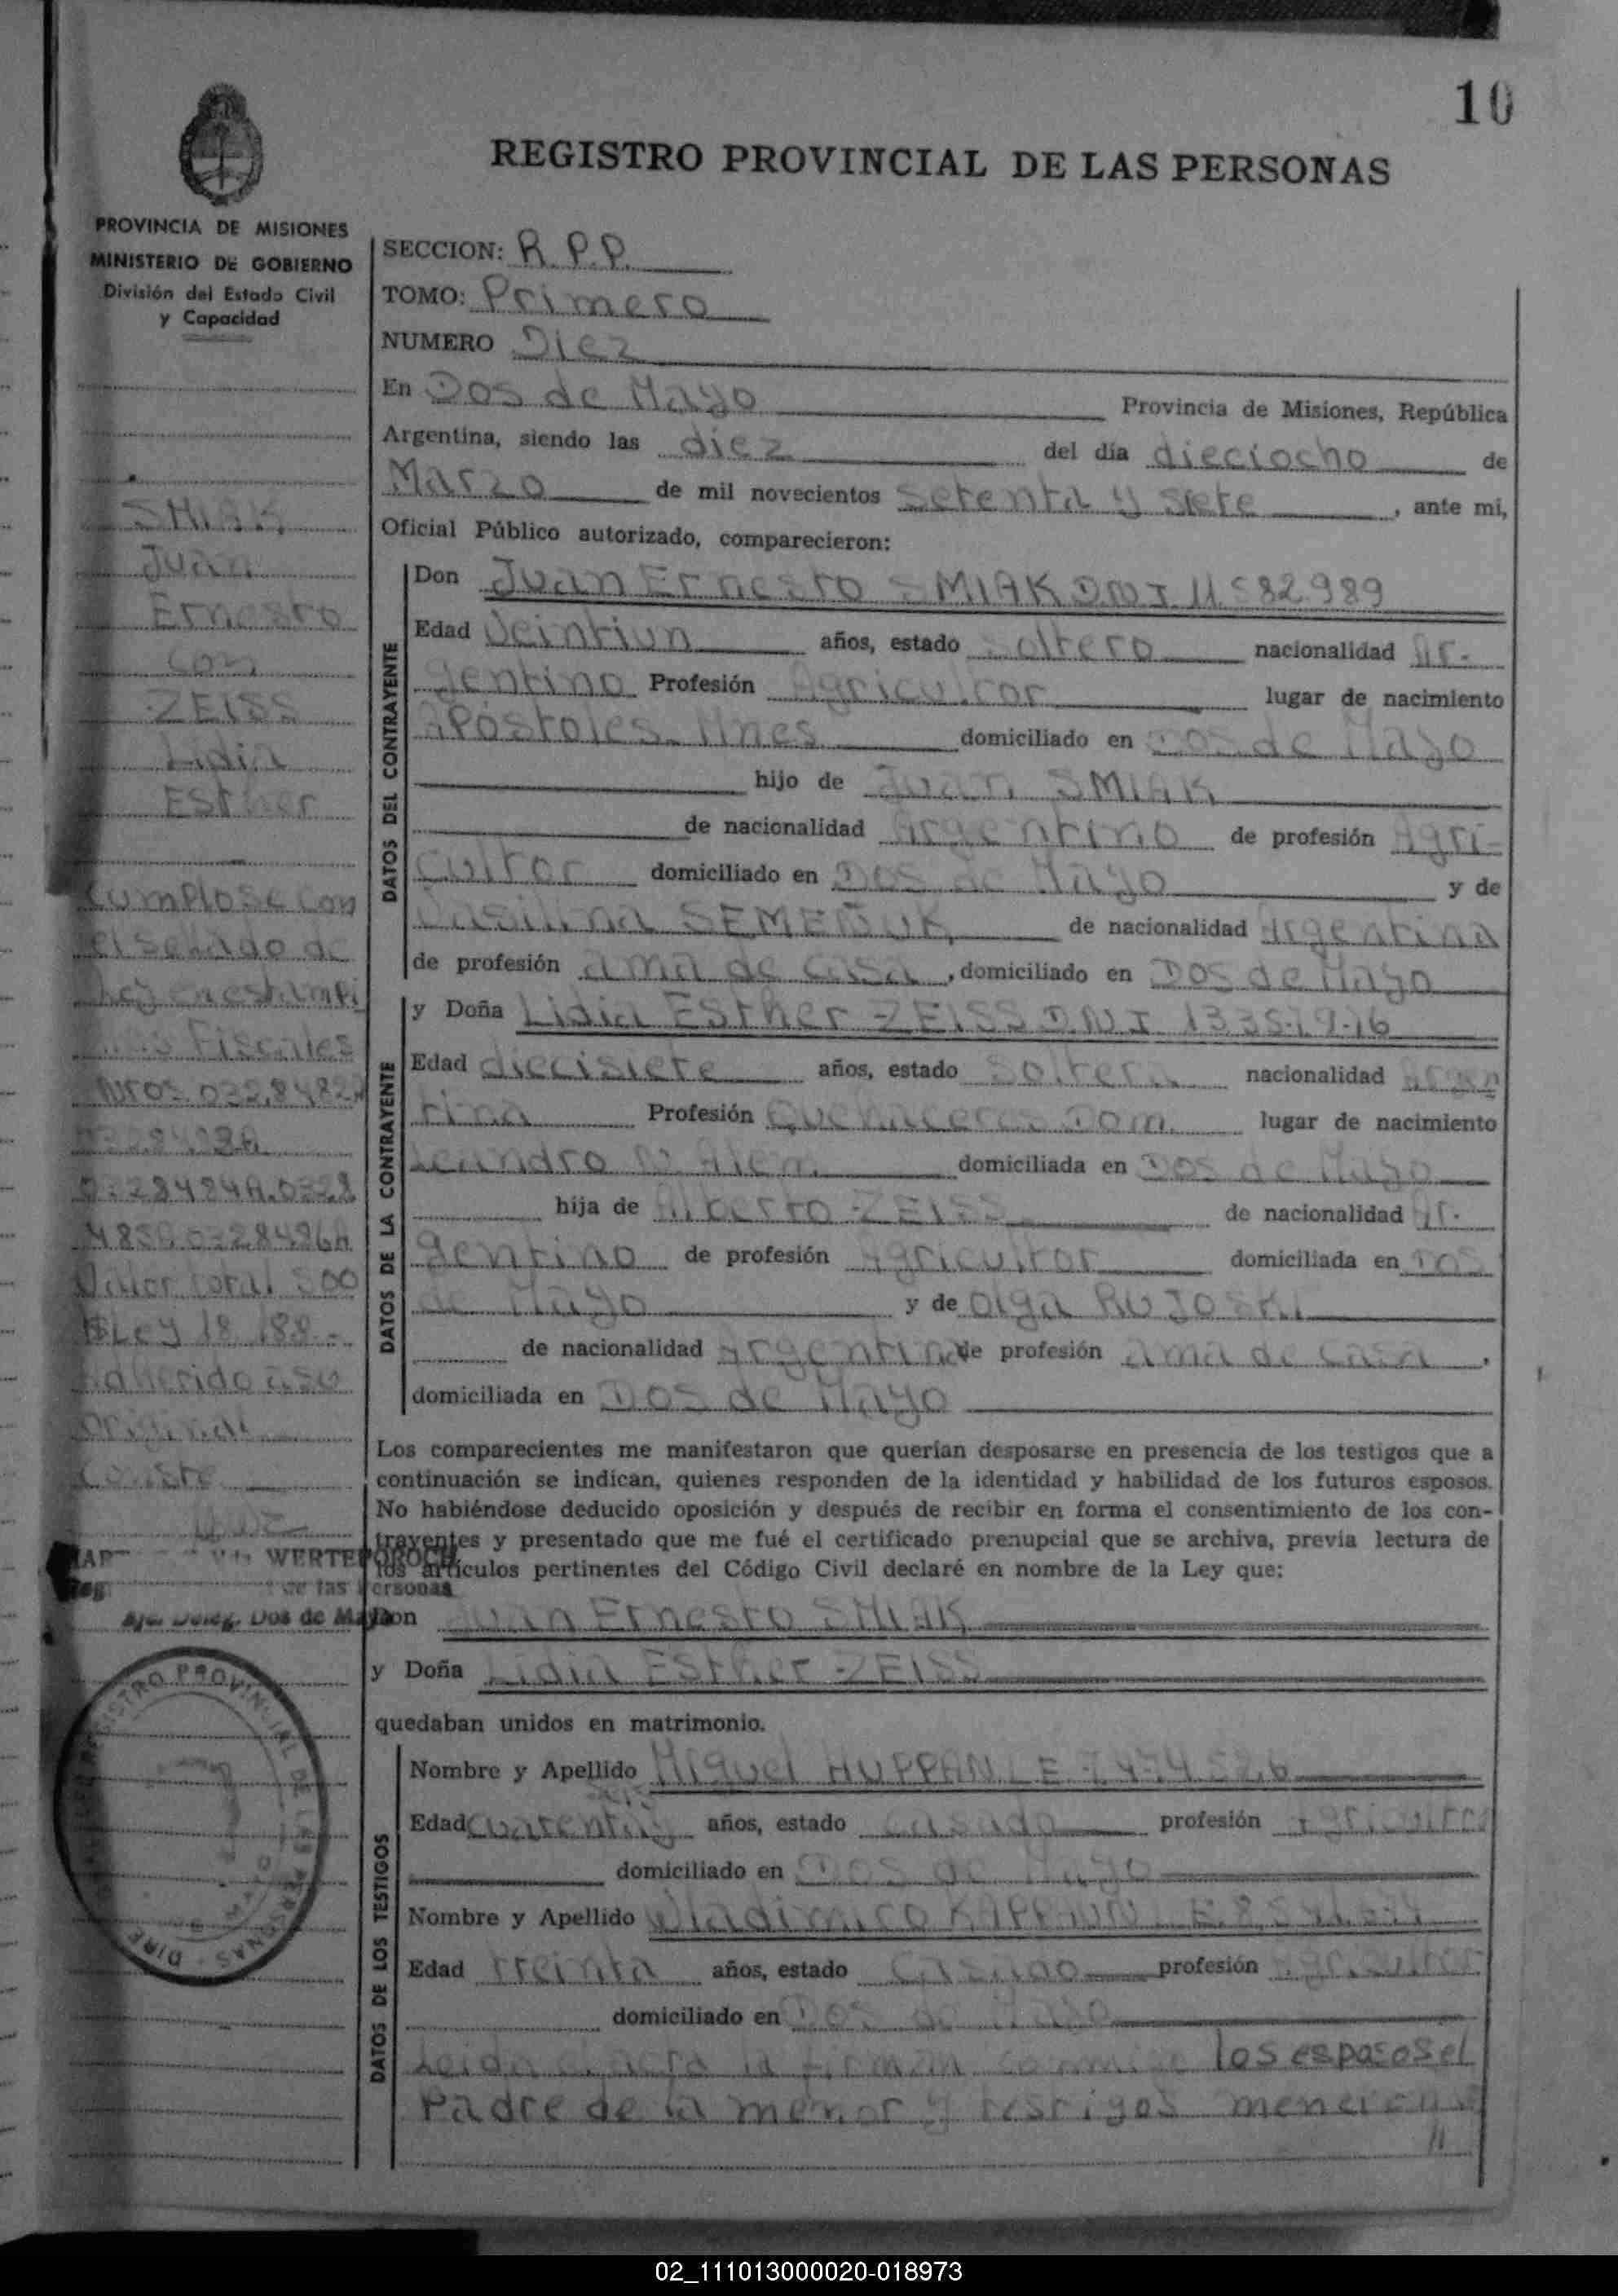 10
REGISTRO PROVINCIAL DE LAS PERSONAS
PROVINCIA DE MISIONES
MINISTERIO DE GOBIERNO
División del Estado Civil
y Capacidad
SMIAK
Juan
Ernesto
con
ZEISS
Lidia
Esther
Cumplose con
el sellado de
Ley en estampi
Fiscales
Nros
Valor total 300
$ Ley 18.188.-
Adherido a su
original
Conste
WERTEPOROCH
de las Personas
Deleg. Dos de Mayo
REGISTRO PROVINCIAL DE LAS PERSONAS
SECCION: R.P.P.
TOMO: Primero
NUMERO Diez
En Dos de Mayo Provincia de Misiones, República
Argentina, siendo las diez del día dieciocho de
Marzo de mil novecientos setenta y siete, ante mi,
Oficial Público autorizado, comparecieron:
DATOS DEL CONTRAYENTE
Don Juan Ernesto SMIAK D.N.I 11.582.989
Edad Veintiun años, estado soltero nacionalidad Ar-
gentino Profesión Agricultor lugar de nacimiento
Apóstoles Mnes domiciliado en Dos de Mayo
hijo de Juan SMIAK
de nacionalidad Argentino de profesión Agri-
cultor domiciliado en Dos de Mayo y de
Vasilina SEMEÑUK de nacionalidad Argentina
de profesión ama de casa, domiciliado en Dos de Mayo
DATOS DE LA CONTRAYENTE
y Doña Lidia Esther ZEISS D.N.I
Edad diecisiete años, estado soltera nacionalidad Argen
tina Profesión Quehaceres Dom. lugar de nacimiento
Leandro N. Alem domiciliada en Dos de Mayo
hija de Alberto ZEISS de nacionalidad Ar-
gentino de profesión Agricultor domiciliada en Dos
de Mayo y de Olga RUJOSKI
de nacionalidad Argentina de profesión ama de casa,
domiciliada en Dos de Mayo
Los comparecientes me manifestaron que querían desposarse en presencia de los testigos que a
continuación se indican, quienes responden de la identidad y habilidad de los futuros esposos.
No habiéndose deducido oposición y después de recibir en forma el consentimiento de los con-
trayentes y presentado que me fué el certificado prenupcial que se archiva, previa lectura de
los artículos pertinentes del Código Civil declaré en nombre de la Ley que:
Don Juan Ernesto SMIAK
y Doña Lidia Esther ZEISS
quedaban unidos en matrimonio.
DATOS DE LOS TESTIGOS
Nombre y Apellido Miguel HUPPAN L.E.
Edad cuarenta y años, estado casado profesión Agricultor
domiciliado en Dos de Mayo
Nombre y Apellido Wladimiro
Edad treinta años, estado casado profesión Agricultor
domiciliado en Dos de Mayo
Leida el acta la firman conmigo los esposos el
Padre de la menor y testigos
02_111013000020-018973